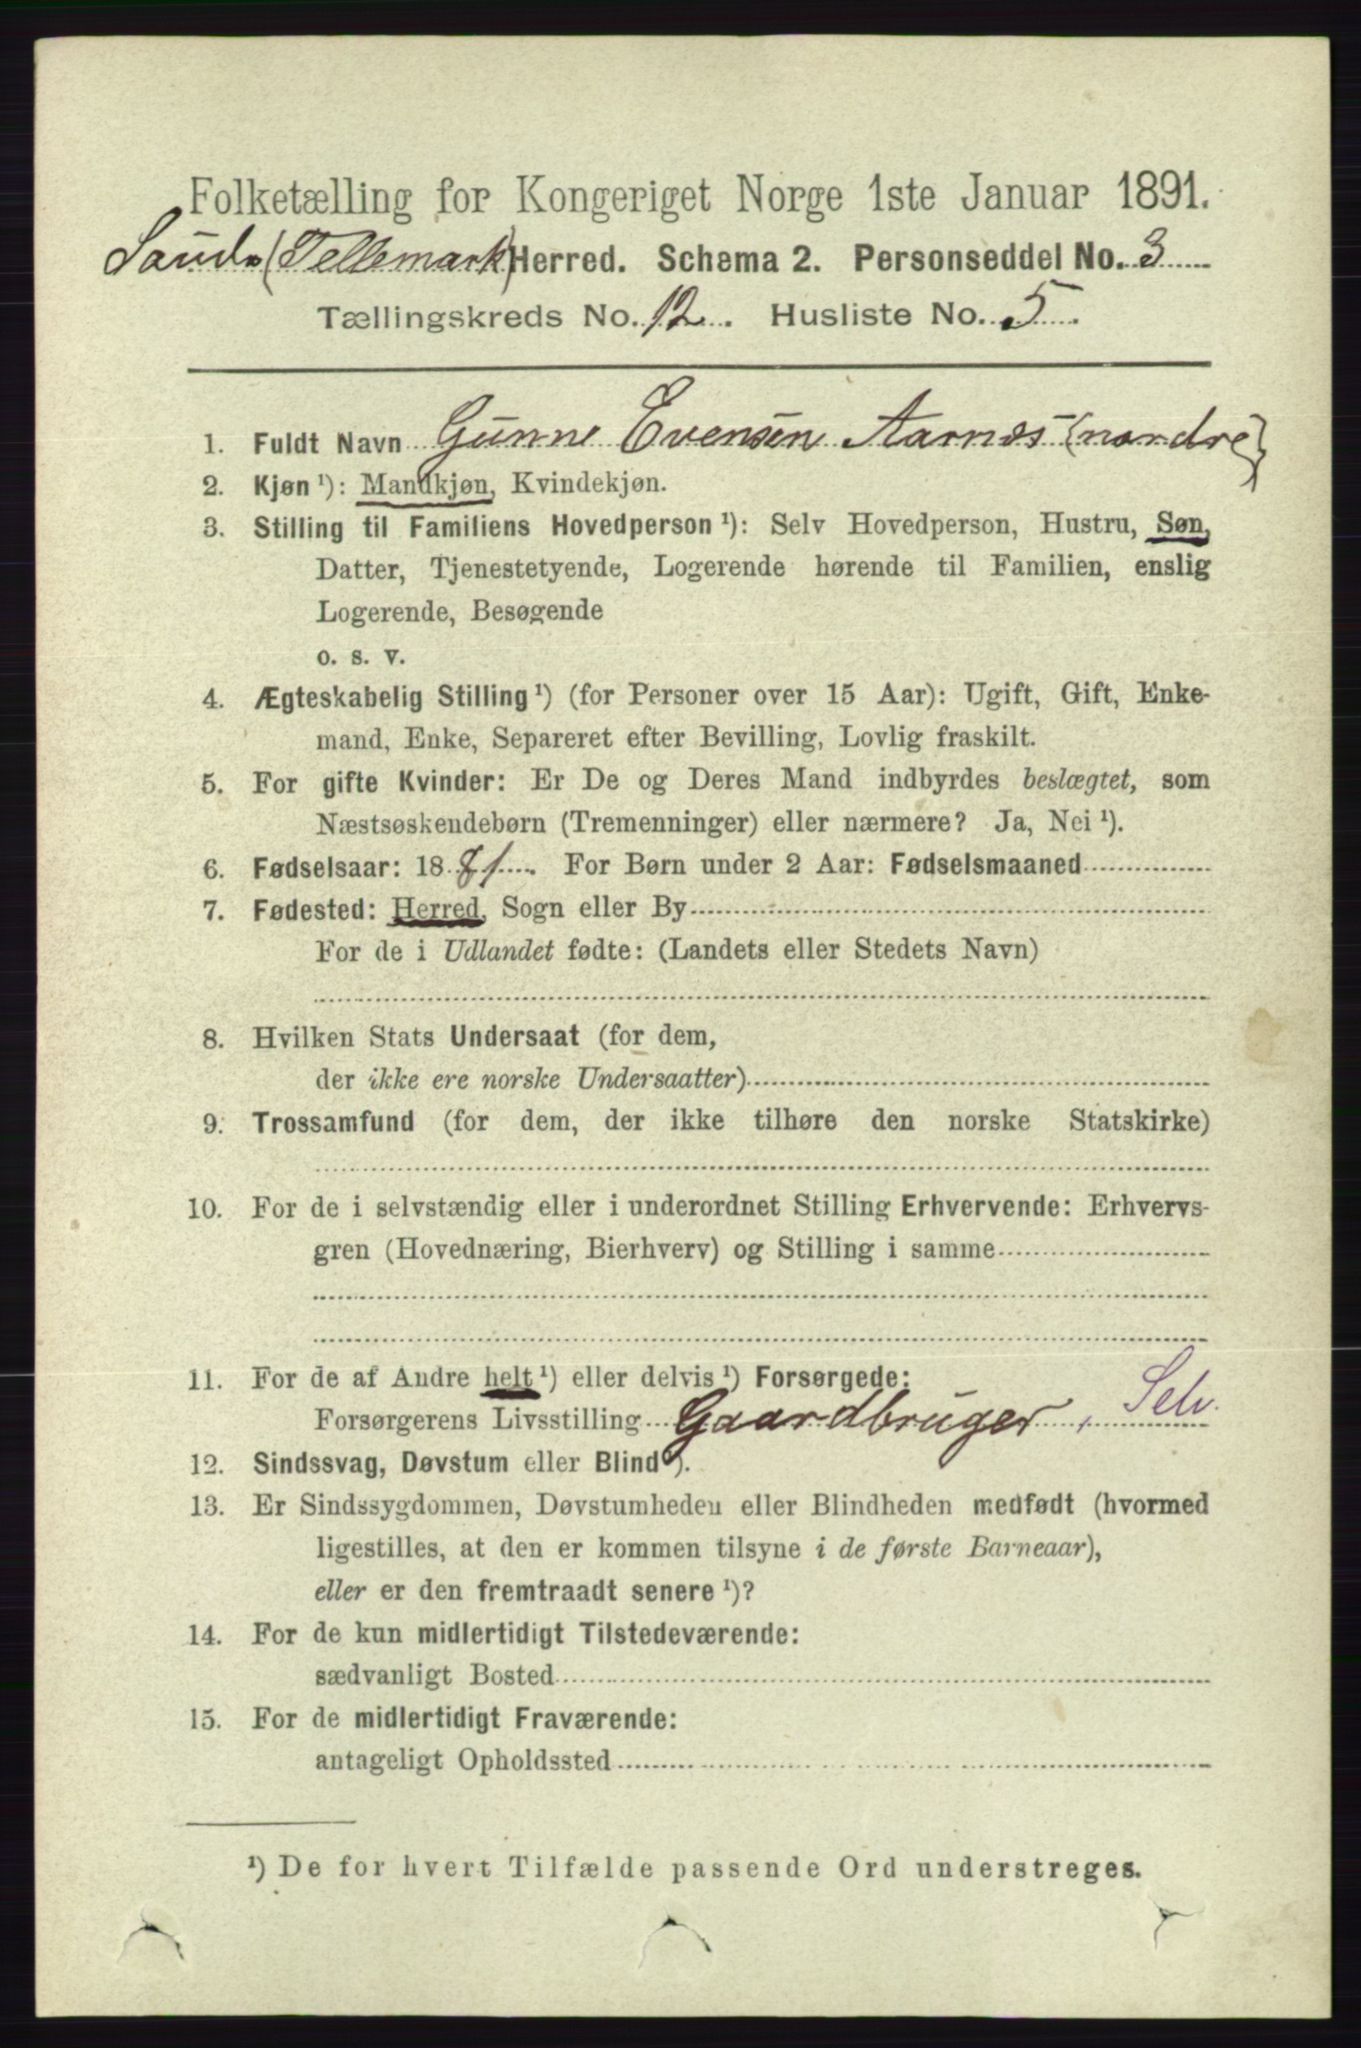 Folketælling for Kongeriget Norge 1ste Januar 1891.
Saude (Tellemark) Herred. Schema 2. Personseddel No. 3
Tællingskreds No. 12. Husliste No. 5.
1. Fuldt Navn Gunne Evensen Aarnes (nordre)
2. Kjøn ¹): Mandkjøn, Kvindekjøn.
3. Stilling til Familiens Hovedperson ¹): Selv Hovedperson, Hustru, Søn,
Datter, Tjenestetyende, Logerende hørende til Familien, enslig
Logerende, Besøgende
o. s. v.
4. Ægteskabelig Stilling ¹) (for Personer over 15 Aar): Ugift, Gift, Enke-
mand, Enke, Separeret efter Bevilling, Lovlig fraskilt.
5. For gifte Kvinder: Er De og Deres Mand indbyrdes beslægtet, som
Næstsøskendebørn (Tremenninger) eller nærmere? Ja, Nei ¹).
6. Fødselsaar: 1881. For Børn under 2 Aar: Fødselsmaaned
7. Fødested: Herred, Sogn eller By
For de i Udlandet fødte: (Landets eller Stedets Navn)
8. Hvilken Stats Undersaat (for dem,
der ikke ere norske Undersaatter)
9. Trossamfund (for dem, der ikke tilhøre den norske Statskirke)
10. For de i selvstændig eller i underordnet Stilling Erhvervende: Erhvervs-
gren (Hovednæring, Bierhverv) og Stilling i samme
11. For de af Andre helt ¹) eller delvis ¹) Forsørgede:
Forsørgerens Livsstilling Gaardbruger, Selv.
12. Sindssvag, Døvstum eller Blind ¹).
13. Er Sindssygdommen, Døvstumheden eller Blindheden medfødt (hvormed
ligestilles, at den er kommen tilsyne i de første Barneaar),
eller er den fremtraadt senere ¹)?
14. For de kun midlertidigt Tilstedeværende:
sædvanligt Bosted
15. For de midlertidigt Fraværende:
antageligt Opholdssted
¹) De for hvert Tilfælde passende Ord understreges.